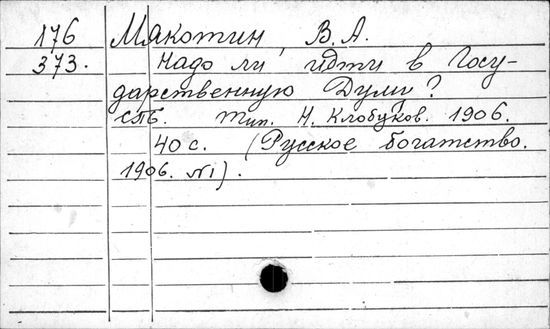 176 Мякотин, В. А.
373. Надо ли идти в Госу-
дарственную Думу?
СПб. Тип. Н. Клобуков. 1906.
40 с. (Русское богатство.
1906. №1).